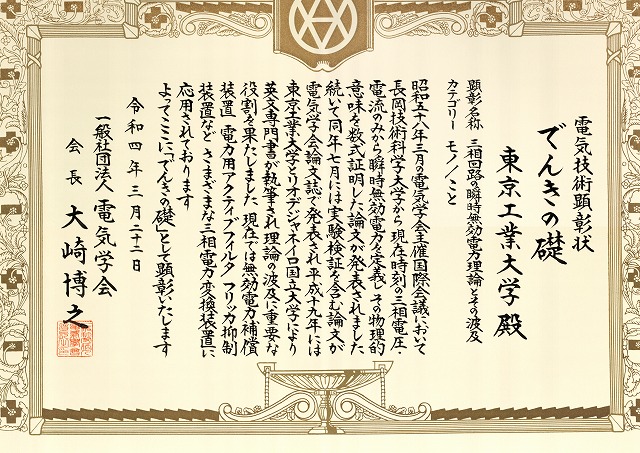 電気技術顕彰状
でんきの礎
東京工業大学 殿
顕彰名称 三相回路の瞬時無効電力理論とその波及
カテゴリー モノ/こと
昭和五十八年三月の電気学会主催国際会議において
長岡技術科学大学から 現在時刻の三相電圧・
電流のみから瞬時無効電力を定義し その物理的
意味を数式証明した論文が発表されました
続いて同年七月には実験検証を含む論文が
電気学会論文誌で発表され 平成十九年には
東京工業大学とリオデジャネイロ国立大学により
英文専門書が執筆され 理論の波及に重要な
役割を果たしました 現在では無効電力補償
装置 電力用アクティブフィルタ フリッカ抑制
装置など さまざまな三相電力変換装置に
応用されております
よってここに「でんきの礎」として顕彰いたします
令和四年三月二十二日
一般社団法人 電気学会
会長 大崎博之